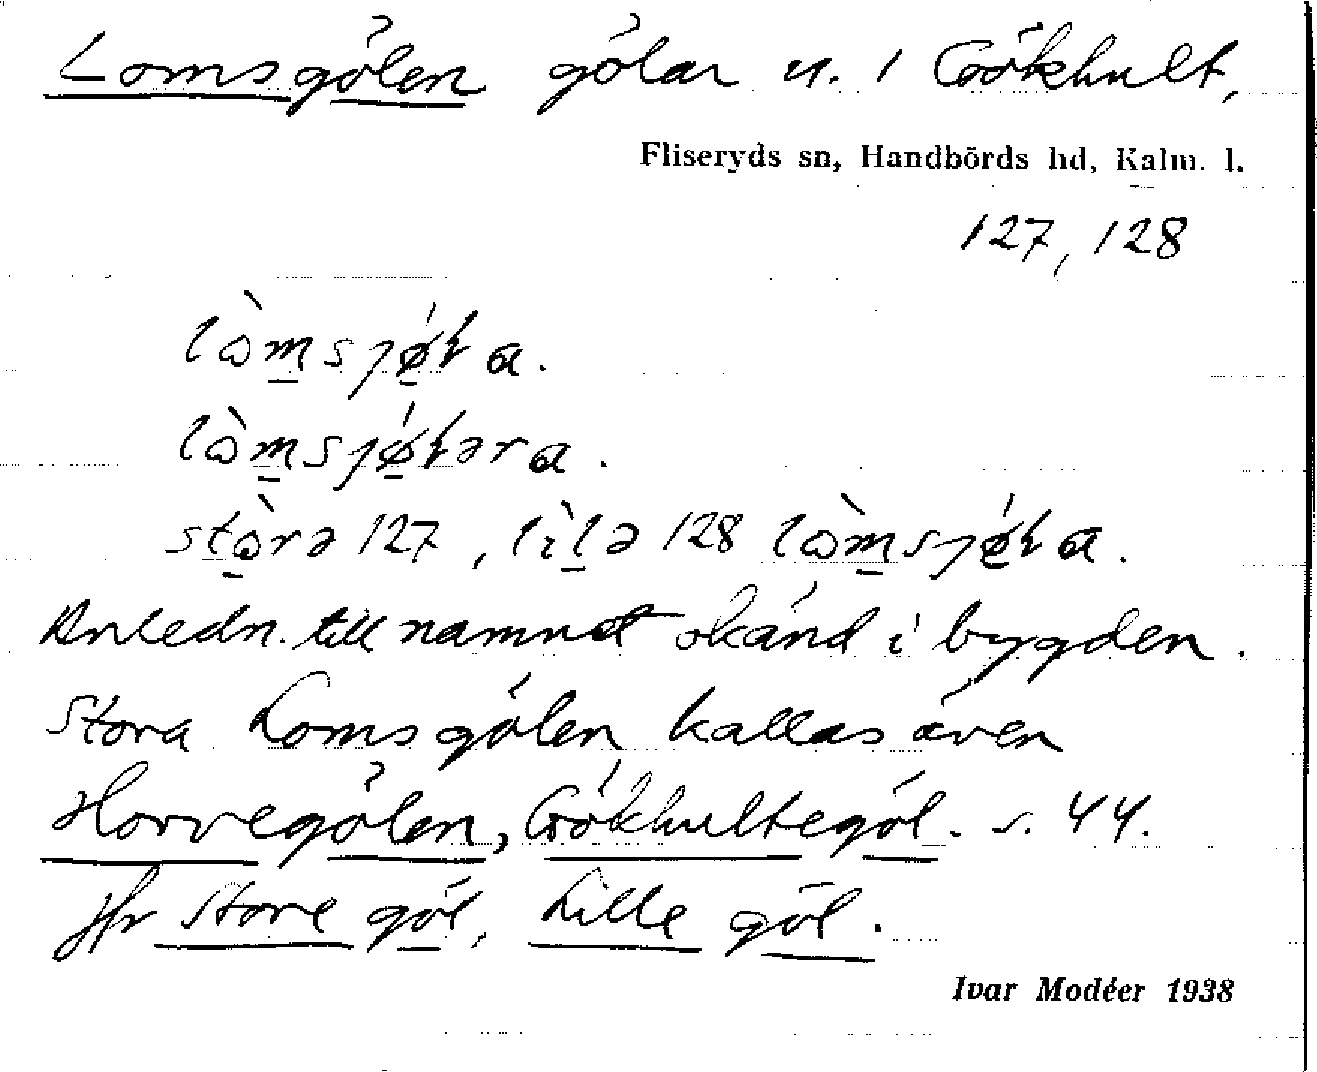 Lomsgölen gölar u. 1 Gökhult,
Fliseryds sn, Handbörds hd, Kalm. l.
127, 128
lòmsjøta.
lòmsjøtəra.
stòrə 127, lìlə 128 lòmsjøta.
Anledn. till namnet okänd i bygden.
Stora Lomsgölen kallas även
Horvegölen, Gökhultegöl. s. 44.
Jfr Store göl, Lille göl.
Ivar Modéer 1938